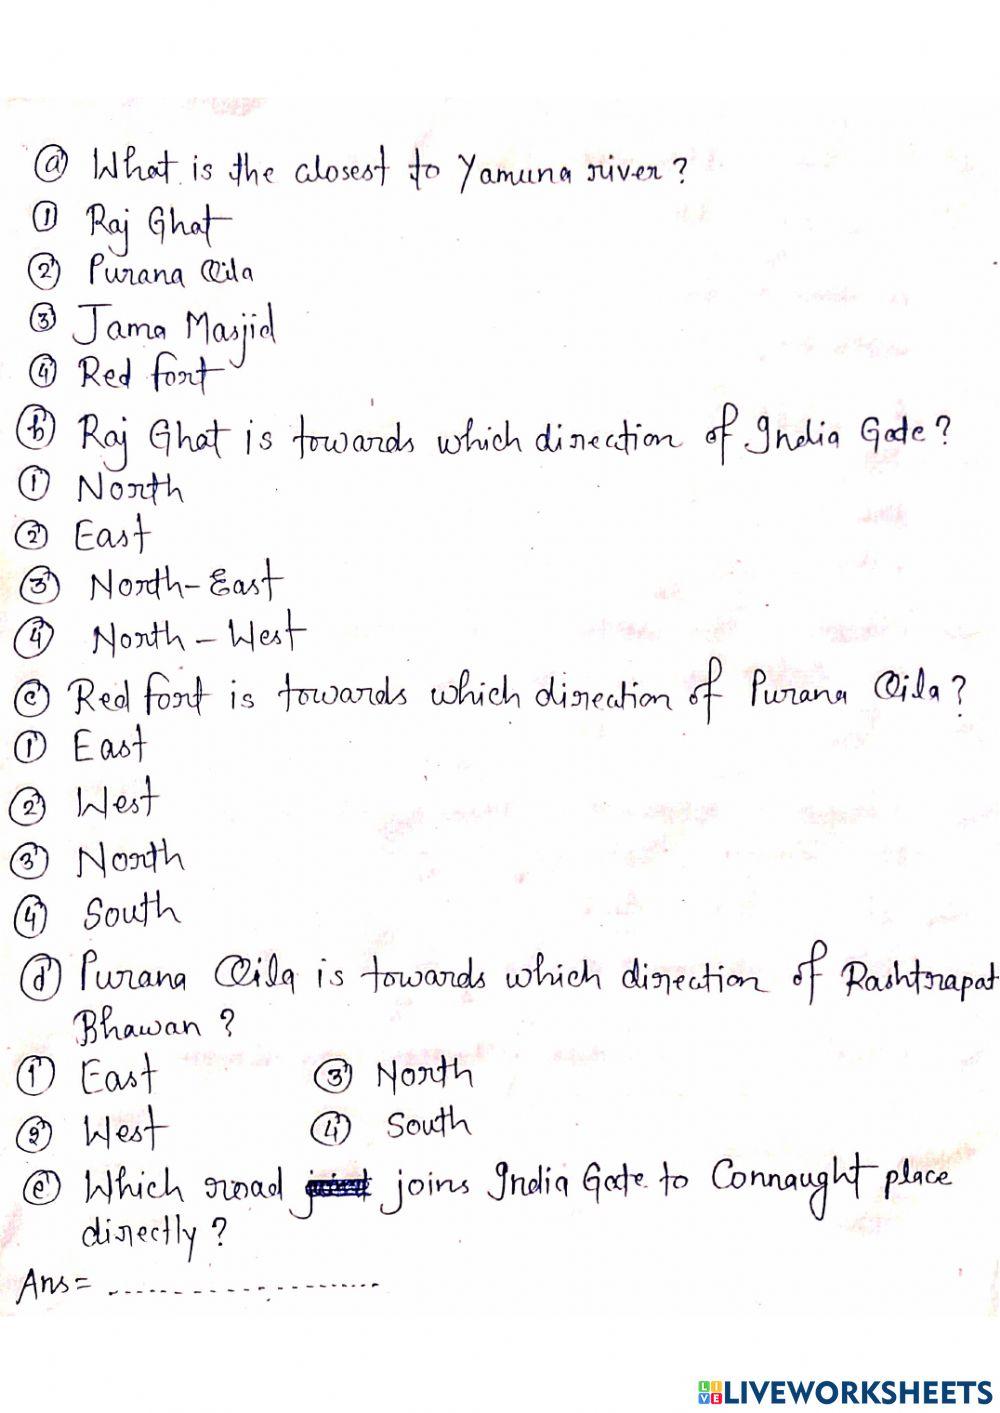 ⓐ What is the closest to Yamuna river?
① Raj Ghat
② Purana Qila
③ Jama Masjid
④ Red fort
ⓑ Raj Ghat is towards which direction of India Gate?
① North
② East
③ North-East
④ North-West
ⓒ Red fort is towards which direction of Purana Qila?
① East
② West
③ North
④ South
ⓓ Purana Qila is towards which direction of Rashtrapat
Bhawan?
① East ③ North
② West ④ South
ⓔ Which road joins India Gate to Connaught place
directly?
Ans= ........................
LIVEWORKSHEETS